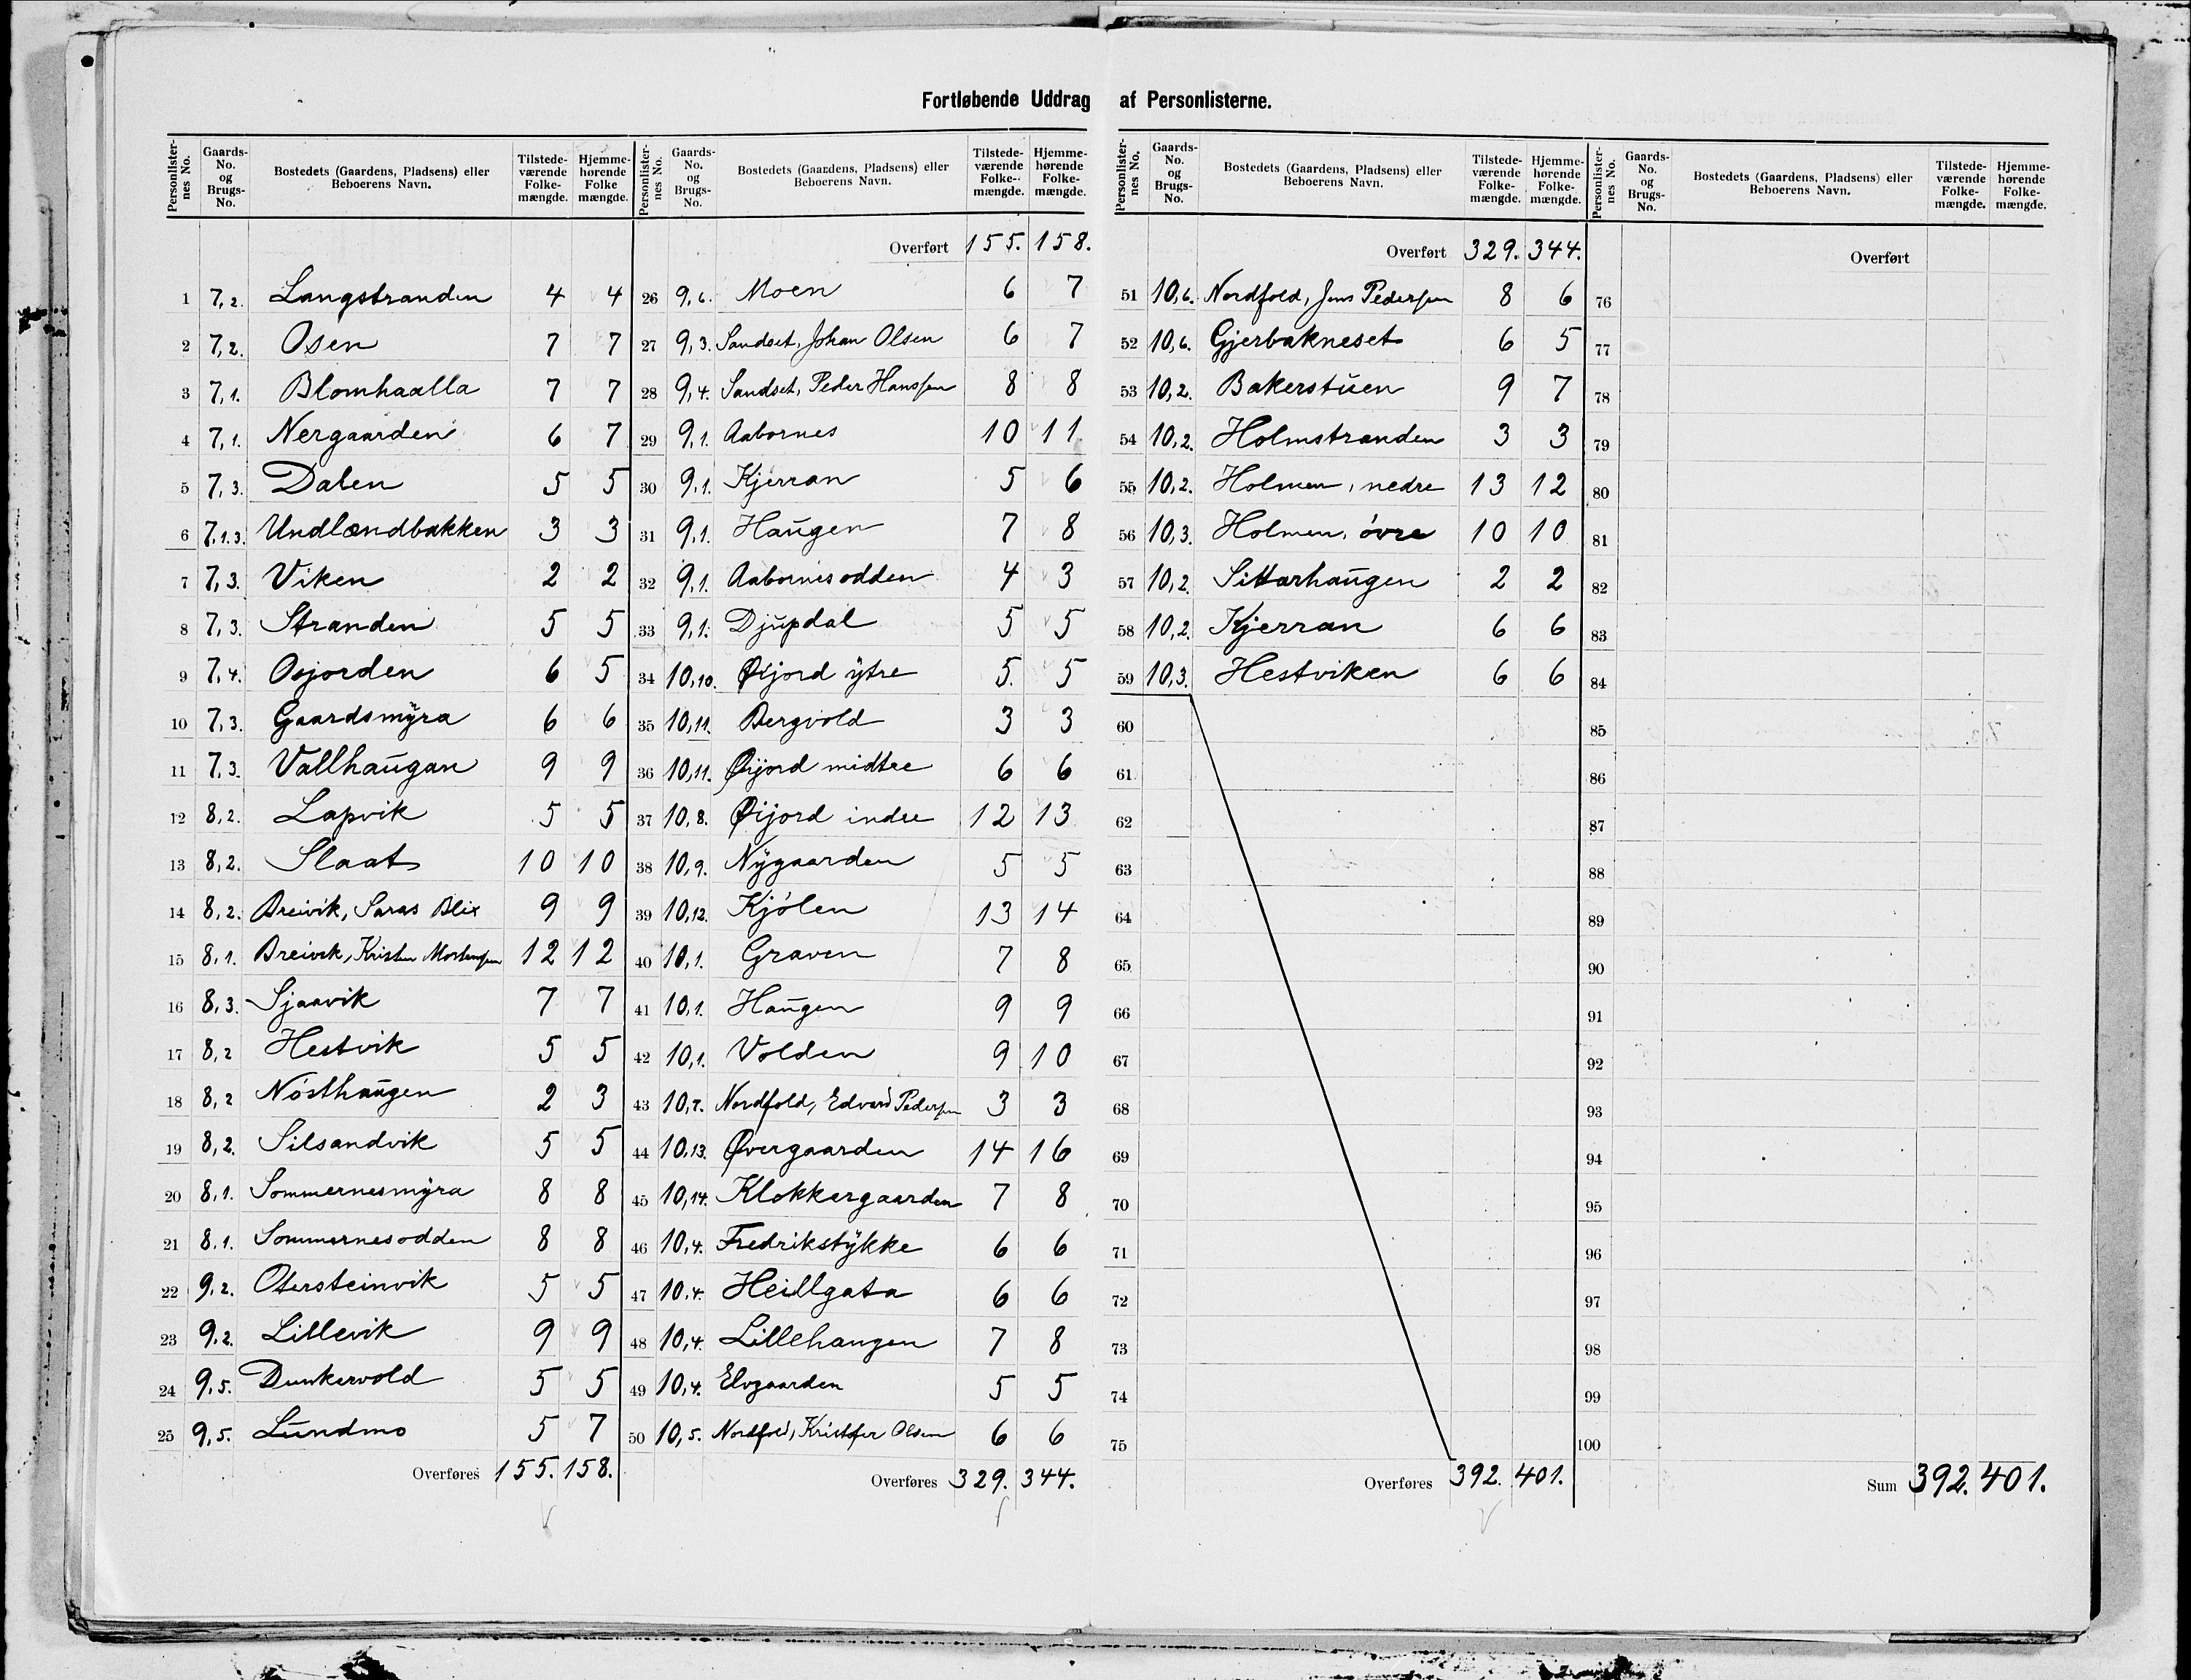 Fortløbende Uddrag af Personlisterne.
Personlister-nes No. Gaards-No. og Brugs-No. Bostedets (Gaardens, Pladsens) eller Beboerens Navn. Tilstede-værende Folke-mængde. Hjemme-hørende Folke mængde.
1 7,2. Langstranden 4 4
2 7,2. Osen 7 7
3 7,1. Blomhaalla 7 7
4 7,1. Nergaarden 6 7
5 7,3. Dalen 5 5
6 7,1.3. Undlændbakken 3 3
7 7,3. Viken 2 2
8 7,3. Stranden 5 5
9 7,4. Osjorden 6 5
10 7,3. Gaardsmyra 6 6
11 7,3. Vallhaugan 9 9
12 8,2. Lapvik 5 5
13 8,2. Slaat 10 10
14 8,2. Breivik, Saras Blix 9 9
15 8,1. Breivik, Kristen Mortensen 12 12
16 8,3. Sjaavik 7 7
17 8,2 Hestvik 5 5
18 8,2 Nósthaugen 2 3
19 8,2. Silsandvik 5 5
20 8,1. Sommernesmyra 8 8
21 8.1. Sommernesodden 8 8
22 9,2. Otersteinvik 5 5
23 9,2. Lillevik 9 9
24 9,5. Dunkervold 5 5
25 9,5. Lundmo 5 7
Overføres 155. 158.
Personlister-nes No. Gaards-No. og Brugs-No. Bostedets (Gaardens, Pladsens) eller Beboerens Navn. Tilstede-værende Folke-mængde. Hjemme-hørende Folke-mængde.
Overført 155. 158.
26 9,6. Moen 6 7
27 9,3. Sandset, Johan Olsen 6 7
28 9,4. Sandset, Peder Hanssen 8 8
29 9,1. Aabornes 10 11
30 9,1. Kjerran 5 6
31 9,1. Haugen 7 8
32 9,1. Aabornesodden 4 3
33 9,1. Djupdal 5 5
34 10,10. Øijord ytre 5. 5
35 10,11. Bergvold 3 3
36 10,11. Øijord midtre 6 6
37 10,8. Øijord indre 12 13
38 10,9. Nygaarden 5 5
39 10,12. Kjólen 13 14
40 10,1. Graven 7 8
41 10,1. Haugen 9 9
42 10,1. Volden 9 10
43 10,7. Nordfold, Edvard Pedersen 3 3
44 10,13. Øvergaarden 14 16
45 10,14. Klokkergaarden 7 8
46 10,4. Fredrikstykke 6 6
47 10,4. Heillgata 6 6
48 10,4. Lillehaugen 7 8
49 10,4. Elvgaarden 5 5
50 10,5. Nordfold, Kristofer Olsen 6 6
Overføres 329. 344.
Personlister-nes No. Gaards-No. og Brugs-No. Bostedets (Gaardens, Pladsens) eller Beboerens Navn. Tilstede-værende Folke-mængde. Hjemme-hørende Folke-mængde.
Overført 329. 344.
51 10,6. Nordfold, Jens Pedersen 8 6
52 10,6. Gjerbakneset 6 5
53 10,2. Bakerstuen 9 7
54 10,2. Holmstranden 3 3
55 10,2. Holmen, nedre 13 12
56 10,3. Holmen, óvre 10 10
57 10,2. Sittarhaugen 2 2
58 10,2. Kjerran 6 6
59 10,3. Hestviken 6 6
60
61
62
63
64
65
66
67
68
69
70
71
72
73
74
75
Overføres 392. 401.
Personlister-nes No. Gaards-No. og Brugs-No. Bostedets (Gaardens, Pladsens) eller Beboerens Navn. Tilstede-værende Folke-mængde. Hjemme-hørende Folke-mængde.
Overført
76
77
78
79
80
81
82
83
84
85
86
87
88
89
90
91
92
93
94
95
96
97
98
99
100
Sum 392. 401.